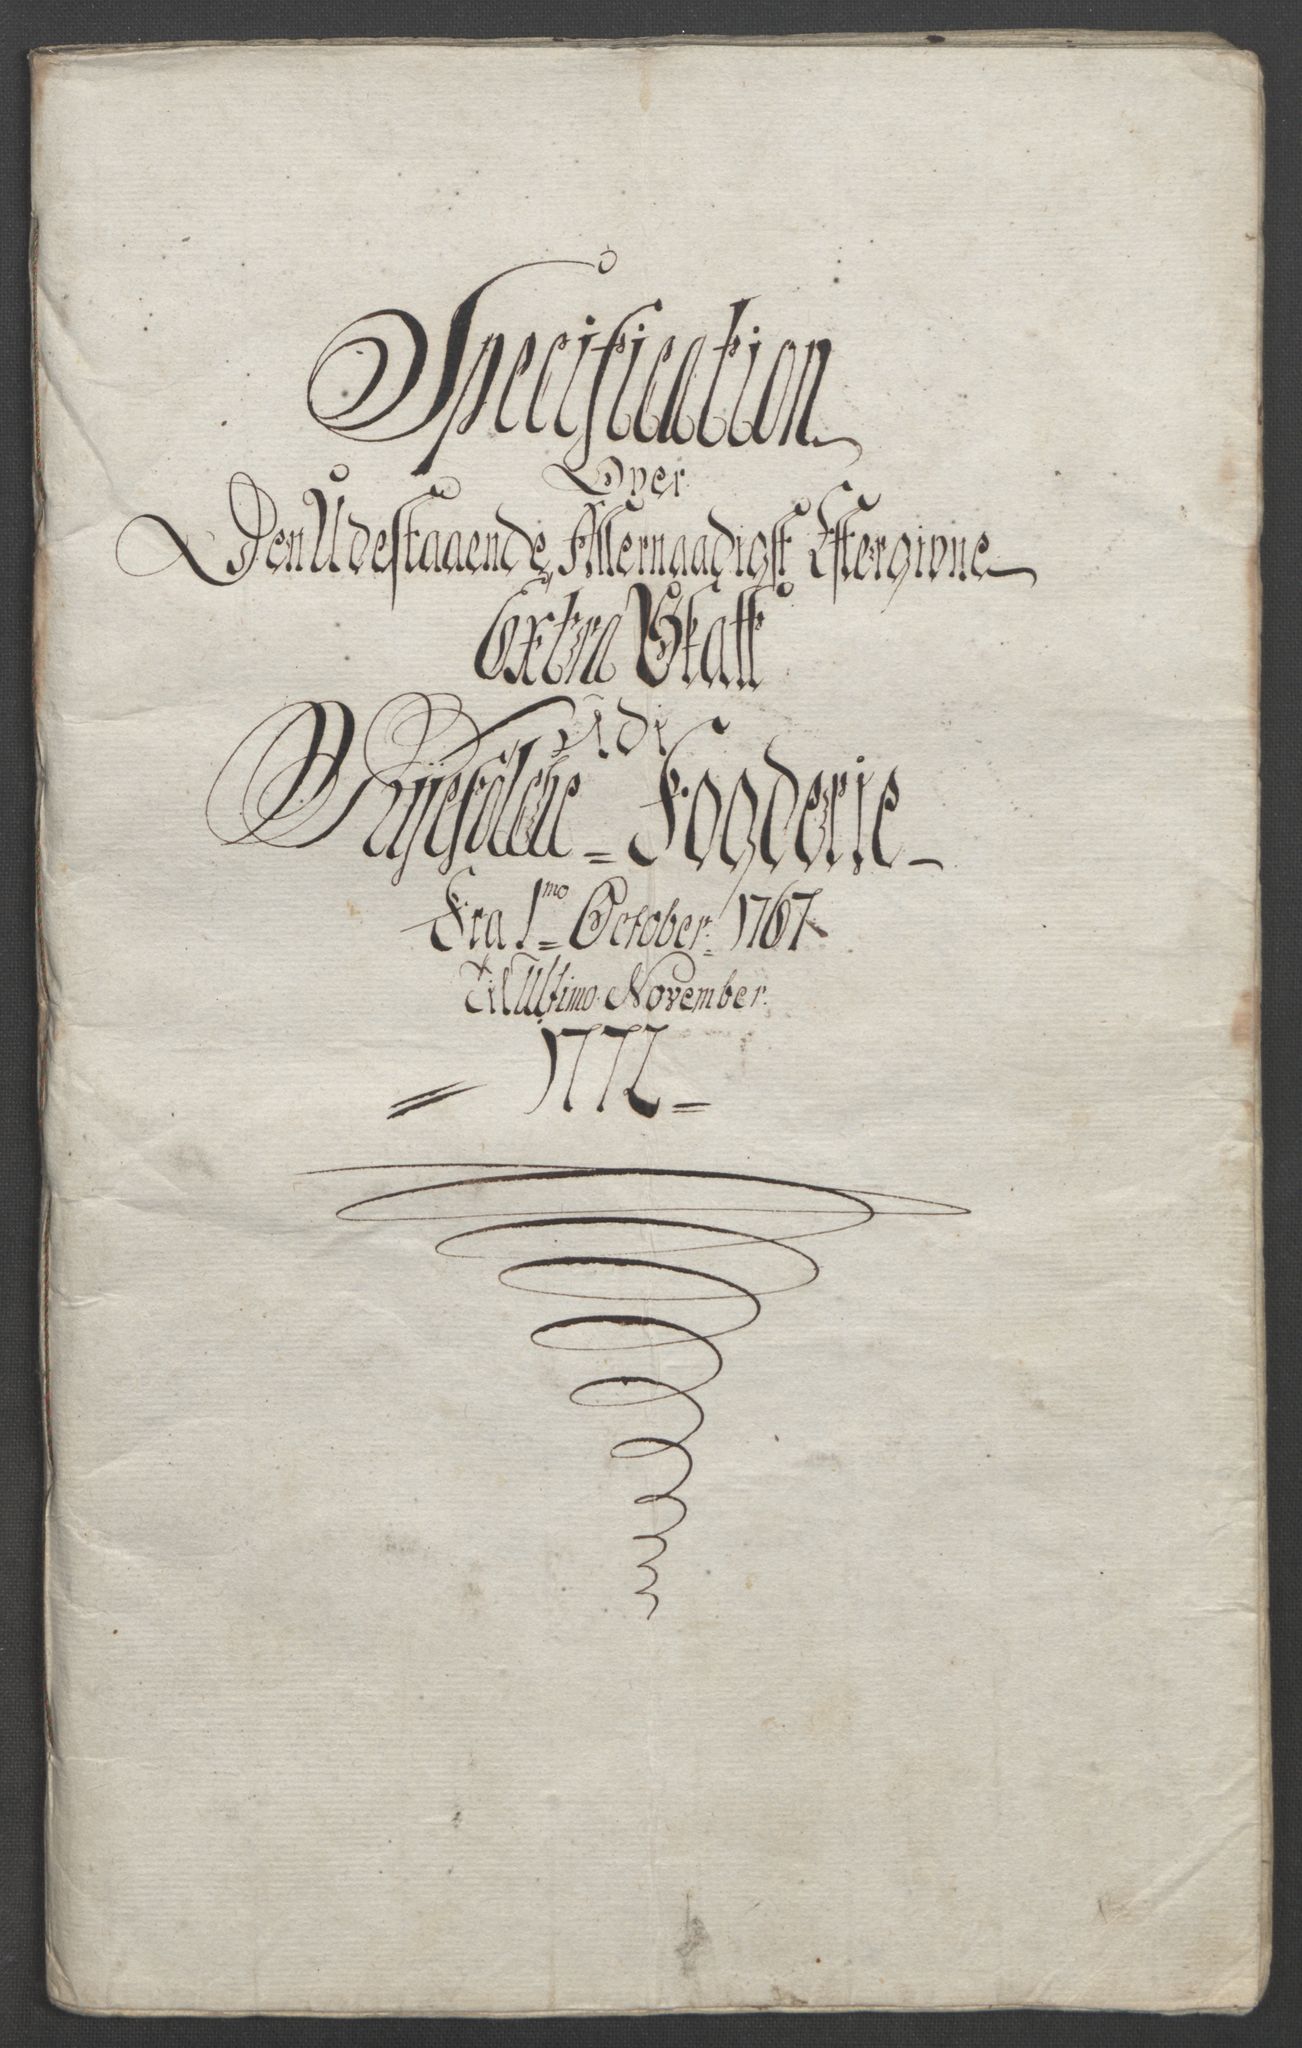 Specification
Over
Den Udestaaende Allernaadigst Eftergivne
Extra Skatt
Udi
Ryefylche = Fogderie
Fra 1mo October 1767
Til Ultimo November
1772